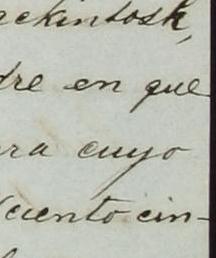 ackintosh,
dre en que
ra cuyo
ciento cin-